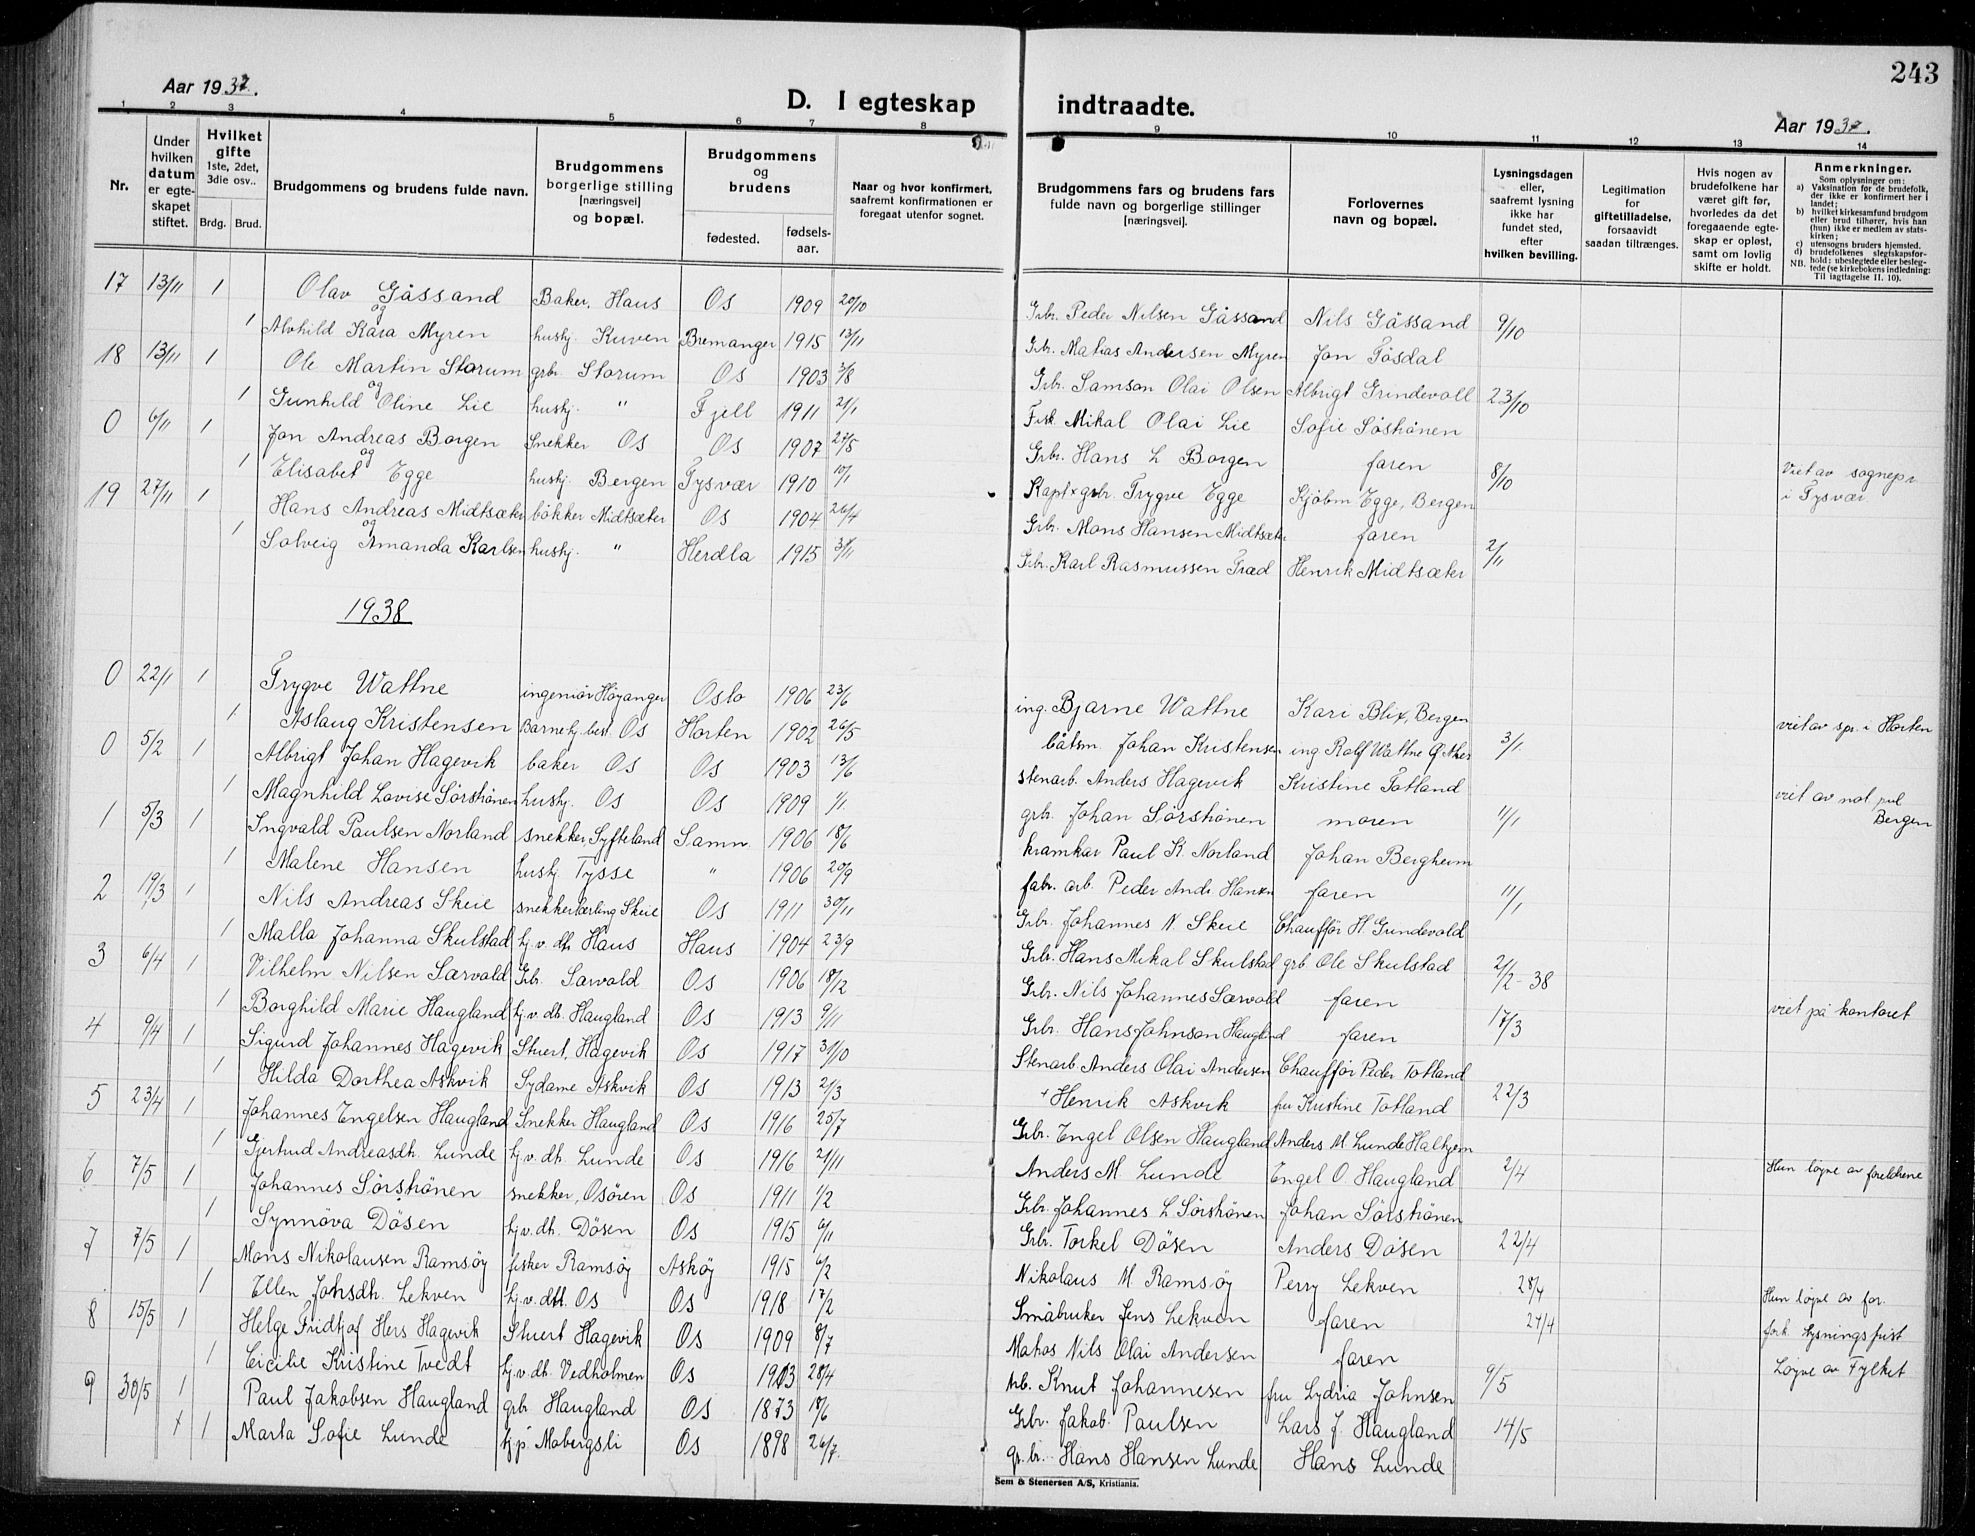 243
Aar 1937.
D. I egteskap indtraadte.
Aar 1937.
1 2 3 4 5 6 7 8 9 10 11 12 13 14
Nr.
Under hvilken datum er egteskapet stiftet.
Hvilket gifte 1ste, 2det, 3die osv..
Brdg. Brud.
Brudgommens og brudens fulde navn.
Brudgommens borgerlige stilling [næringsvei] og bopæl.
Brudgommens og brudens
fødested. fødselsaar.
Naar og hvor konfirmert, saafremt konfirmationen er foregaat utenfor sognet.
Brudgommens fars og brudens fars fulde navn og borgerlige stillinger [næringsvei].
Forlovernes navn og bopæl.
Lysningsdagen eller, saafremt lysning ikke har fundet sted, efter hvilken bevilling.
Legitimation for giftetilladelse, forsaavidt saadan tiltrænges.
Hvis nogen av brudefolkene har været gift før, hvorledes da det foregaaende egteskap er opløst, samt om lovlig skifte er holdt.
Anmerkninger.
Som oplysninger om:
a) Vaksination for de brudefolk, der ikke er konfirmert her i landet;
b) hvilket kirkesamfund brudgom eller brud tilhører, hvis han (hun) ikke er medlem av statskirken;
c) utensogns bruders hjemsted.
d) brudefolkenes slegtskapsforhold: ubeslegtede eller beslegtede (se kirkebokens indledning: NB. Til iagttagelse II. 10).
17 13/11 1 Olav Gåssand Baker, Haus Os 1909 20/10 Grbr. Peder Nilsen Gåssand Nils Gåssand 9/10
og
1 Alvhild Kåra Myren hushj. Kuven Bremanger 1915 13/11 Gbr. Matias Andersen Myren Jon Tøsdal
18 13/11 1 Ole Martin Storum grbr. Storum Os 1903 3/8 Grbr. Samson Olai Olsen Albrigt Grindevoll 23/10
og
1 Gunhild Oline Lie hushj. " Fjell 1911 21/1 Fisk. Mikal Olai Lie Sofie Søstrønen
0 6/11 1 Jon Andreas Borgen Snekker Os Os 1907 27/5 Grbr. Hans L Borgen faren 8/10 Viet av sognepr i Tysvær
og
1 Elisabet Egge hushj. Bergen Tysvær 1910 10/1 Kapt. x grbr. Trygve Egge Kjøbm Egge, Bergen
19 27/11 1 Hans Andreas Midtsæter bøkker Midtsæter Os 1904 26/4 Grbr. Mons Hansen Midtsæter faren 2/11
og
1 Solveig Amanda Karlsen hushj. " Herdla 1915 3/11 Gbr. Karl Rasmussen Træd Henrik Midtsæter
1938
0 22/1 1 Trygve Wattne ingeniør Høyanger Oslo 1906 23/6 ing. Bjarne Wattne Kari Blix, Bergen 3/1 viet av spr. i Horten
1 Aslaug Kristensen Barnehj. best. Os Horten 1902 26/5 båtsm. Johan Kristensen ing. Rolf Wattne
0 5/2 1 Albrigt Johan Hagevik baker Os Os 1903 13/6 stenarb. Anders Hagevik Kristine Totland 11/1 viet av not. pul Bergen
1 Magnhild Lovise Sørstrønen hushj. Os Os 1909 1/1 grbr. Johan Sørstrønen moren
1 5/3 1 Ingvald Paulsen Norland snekker Syfteland Samn. 1906 18/6 kramkar Paul K. Norland Johan Bergheim 11/1
1 Malene Hansen hushj. Tysse " 1906 20/9 fabr. arb. Peder Andr. Hansen faren
2 19/3 1 Nils Andreas Skeie snekkerlærling Skeie Os 1911 30/11 Grbr. Johannes N. Skeie Chauffør H. Grindevold 2/2-38
1 Malla Johanna Skulstad hj.v.dtr. Haus Haus 1904 23/9 Grbr. Hans Mikal Skulstad grb. Ole Skulstad
3 6/4 1 Vilhelm Nilsen Særvold Grbr. Særvold Os 1906 18/12 Grbr. Nils Johannes Særvold faren 17/3 viet på kontoret
1 Borghild Marie Haugland hj.v.dtr. Haugland Os 1913 9/11 Grbr. Hans Johnson Haugland faren
4 9/4 1 Sigurd Johannes Hagevik Stuert, Hagevik Os 1917 31/10 Stenarb Anders Olai Andersen Chauffør Peder Totland 22/3
1 Hilda Dorthea Askvik Sydame Askvik Os 1913 2/3 + Henrik Askvik fru Kristine Totland
5 23/4 1 Johannes Engelsen Haugland Snekker Haugland Os 1916 25/7 Grbr. Engel Olsen Haugland Anders M. Lunde Halhjem 2/4 Hun løyve av foreldrene
1 Gjertrud Andreasdtr. Lunde hj.v.dtr. Lunde Os 1916 21/11 Anders M. Lunde Engel O. Haugland
6 7/5 1 Johannes Sørstrønen snekker, Osøren Os 1911 1/2 Grbr. Johannes L Sørstrønen Johan Sørstrønen 22/4
1 Synnøva Døsen hj.v.dtr. Døsen Os 1915 6/11 Grbr. Torkel Døsen Anders Døsen
7 7/5 1 Mons Nikolausen Ramsøy fisker Ramsøy Askøy 1915 6/2 Nikolaus M. Ramsøy Perry Lekven 28/4 Hun løyve av for.
1 Ellen Johsdtr. Lekven hj.v.dtr. Os Os 1918 17/2 Småbruker Jens Lekven faren 27/4 fork. lysningsfrist
8 15/5 1 Helge Fridtjof Hers Hagevik Stuert Hagevik Os 1909 8/7 Matros Nils Olai Andersen faren 9/5 Løyve av Fylket
1 Cicilie Kristine Tvedt hj.v.dtr. Vedholmen Os 1913 28/4 arb. Knut Johannesen fru Lydria Johnsen
9 30/5 1 Paul Jakobsen Haugland grbr. Haugland Os 1873 18/6 Grbr. Jakob Paulsen Lars J. Haugland 14/5
+ 1 Marta Sofie Lunde hj.p. Mobergsli Os 1898 26/7 gr.br. Hans Hansen Lunde Hans Lunde
Sem & Stenersen A/S, Kristiania.